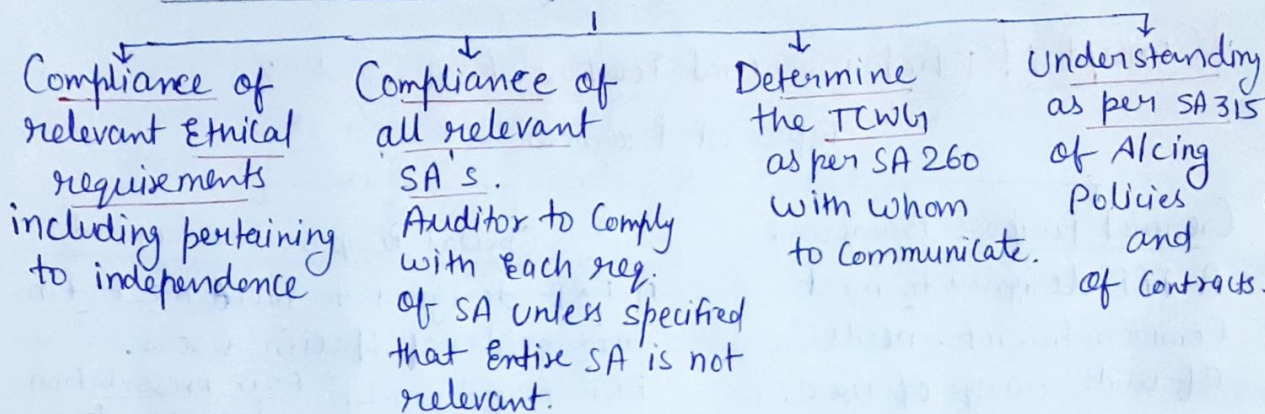 Compliance of
relevant Ethical
requirements
including pertaining
to independence
Compliance of
all relevant
SA's.
Auditor to Comply
with Each req.
of SA unless specified
that Entire SA is not
relevant.
Determine
the TCWG
as per SA 260
with whom
to Communicate.
Understanding
as per SA 315
of A/cing
Policies
and
of Contracts.